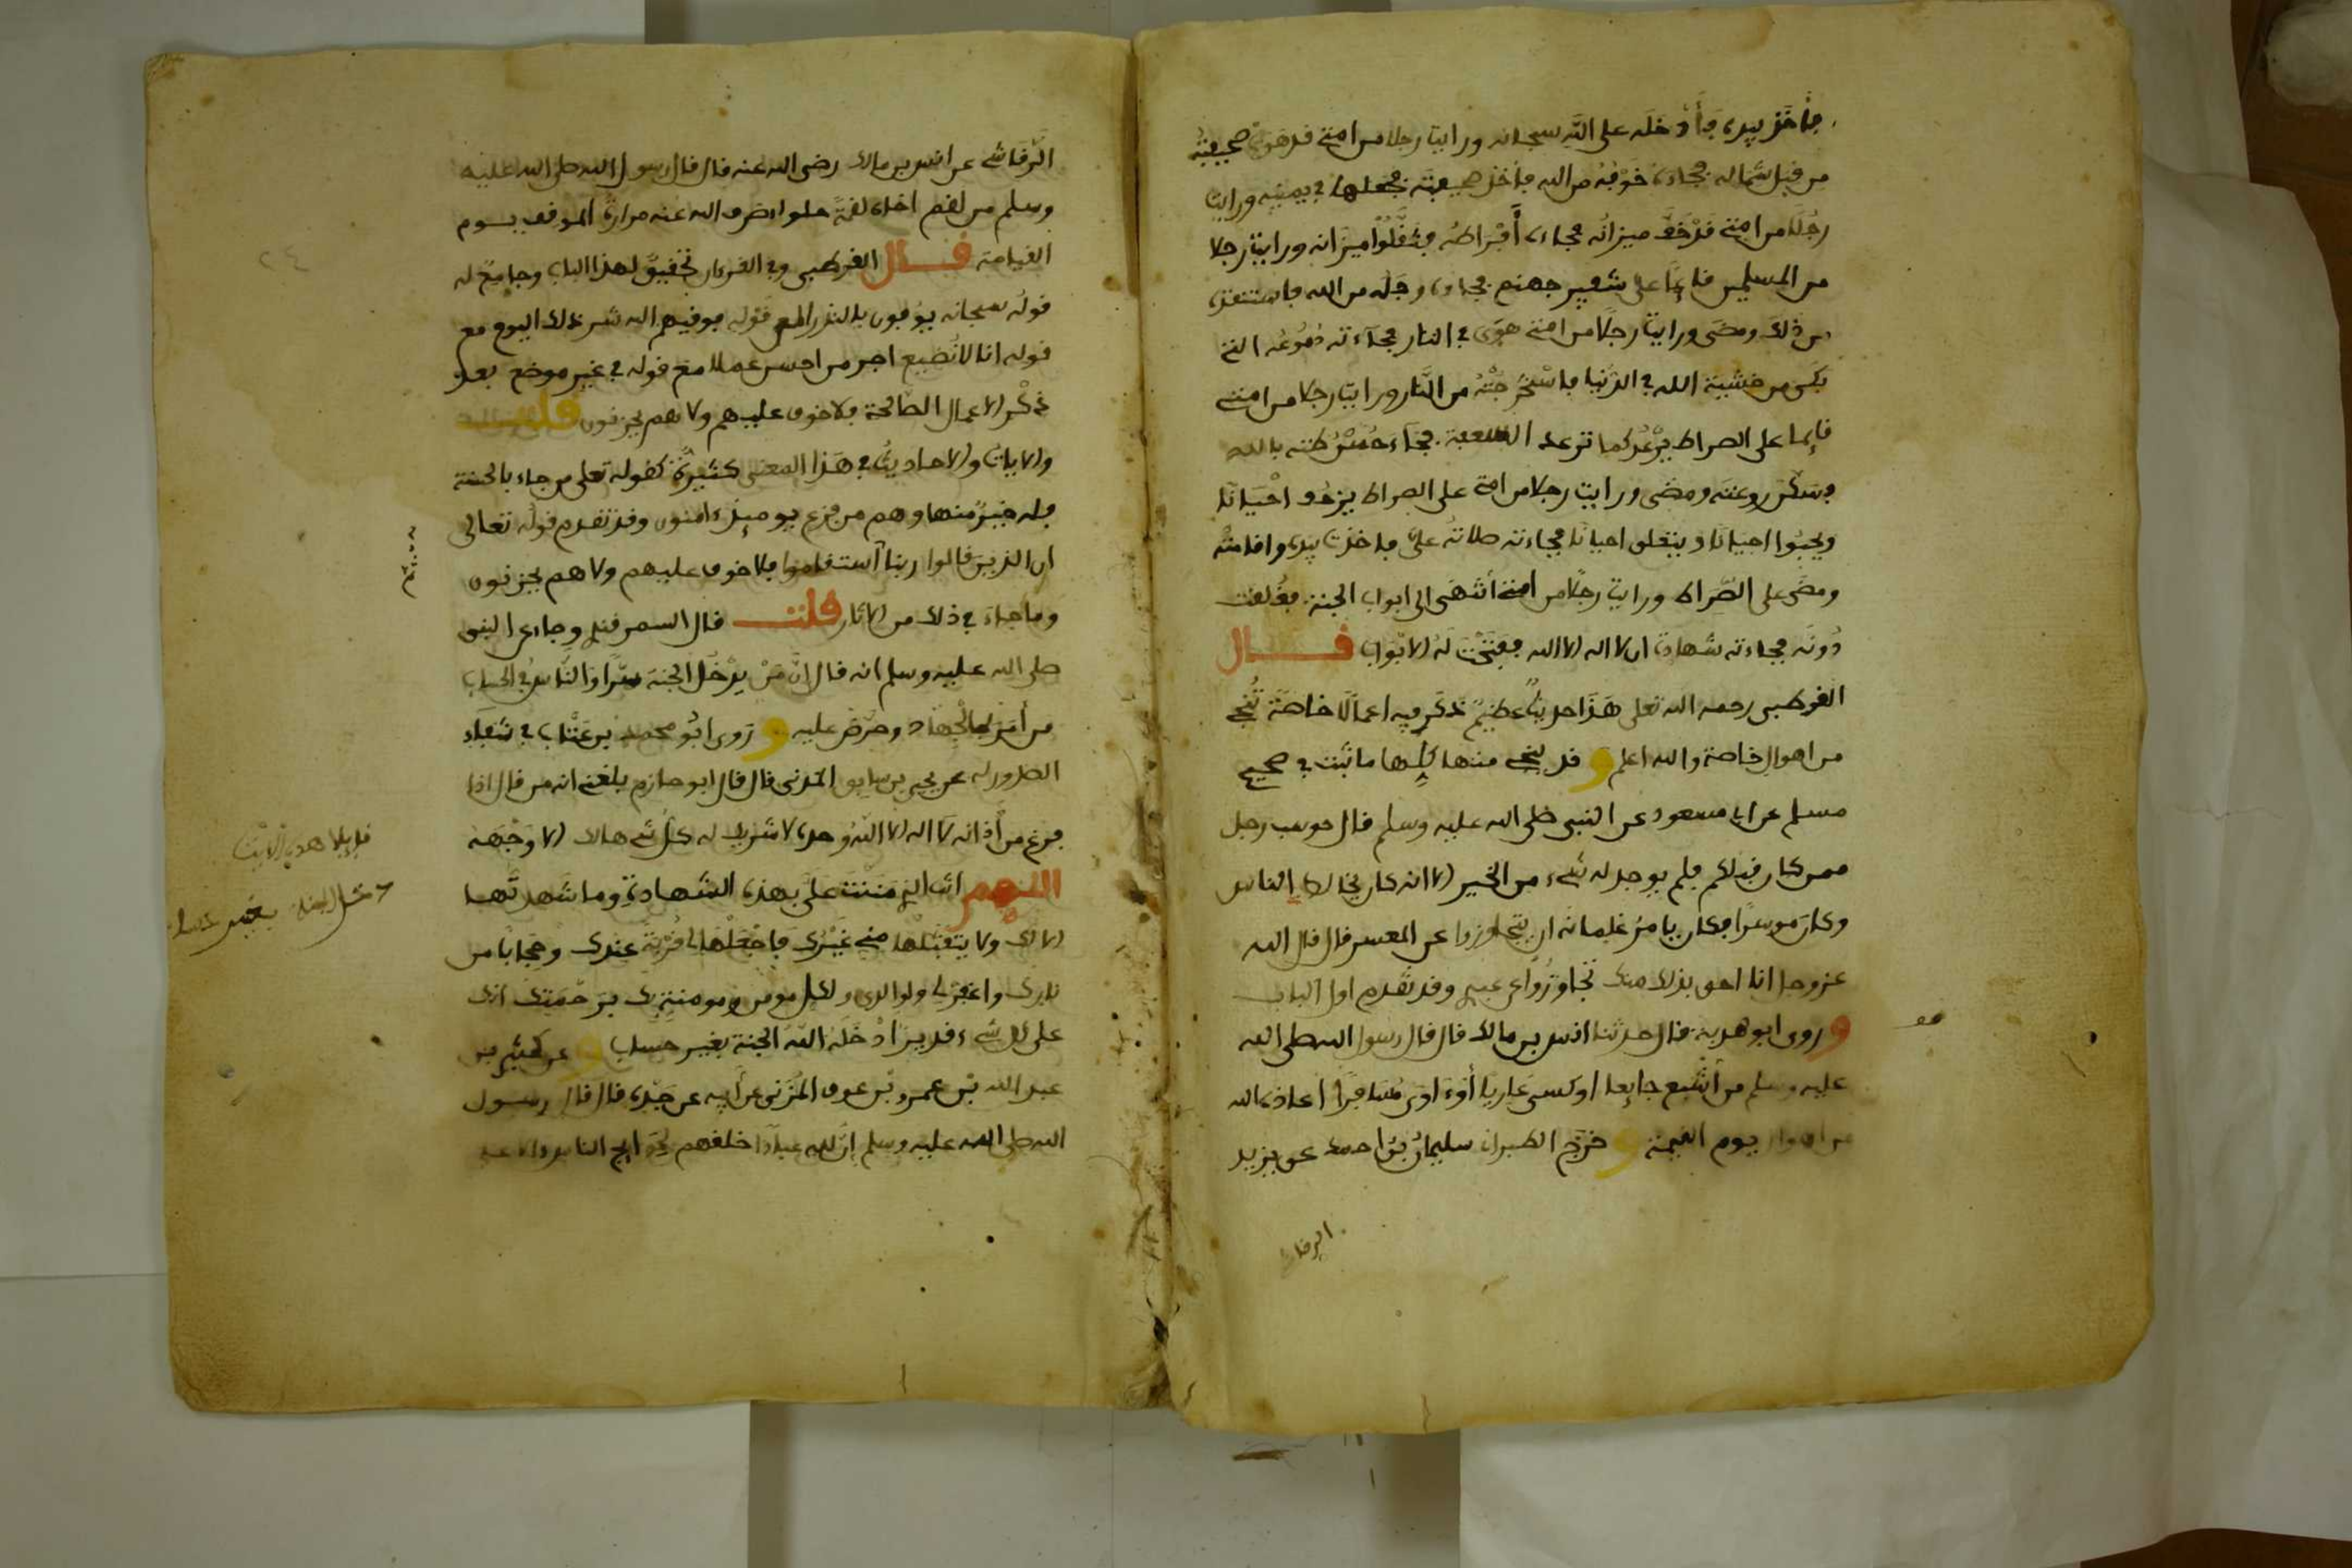 فأخذ بيده فأَدْخله على الله سبحانه ورايت رجلا من امتي قد هوت صحيفته
من قبل شماله فجاءه خَوْفُهُ من الله فأخذ صحيفته فجعلها في يمينه ورايت
رجُلًا من امتي قَدْ خَفَّ ميزانُه فجاءه أَفْراطُهُ فثَقَّلُوا ميزانه ورايت رجلا
من المسلمين قائما على شفير جهنم فجاءه وجَلُه من الله فاستنقذه
من ذلك ومضى ورايت رجلًا من امتي هوى في النار فجآءته دُمُوعُه التي
بكى من خشية الله في الدّنيا فاسْتَخْرَجَتْهُ من النّار ورايت رجلا من امتي
قايما على الصراط يرْعدُ كما ترعد السعفة فجآء حُسْنُ ظنه بالله
فسكّن روعته ومضى ورايت رجلا من امتي على الصراط يزحُف احْيَانًا
ويحبُوا احيانًا ويتعلق احيانًا فجاءته صلاتُه عليّ فاخذت بيده واقامتْه
ومضى على الصّراط ورايت رجلًا من امتي أنتهَى الى ابواب الجنة فغُلقت
دُونَه فجاءته شهادة ان لا اله الا الله ففتحت لهُ الابْواب قــال
القرطبي رحمه الله تعلى هَذَا حديثٌ عظيمٌ ذكَر فيه اعمالًا خاصّة تُنْجي
من اهوال خاصة والله اعلم وقد ينجي منها كلها ما ثبت في صحيح
مسلم عن ابي مسعود عن النبي صلى الله عليه وسلم قال حوسب رجل
ممن كان قبلكم فلم يوجد له شيء من الخير الا انه كان يخالط الناس
وكان موسرًا فكان يامرُ غلمانه ان يتجاوزوا عن المعسر قال قال الله
عز وجل انا احق بذلك منك تجاوزُوا عن عبدي وقد تقدم اول الباب
وروى ابو هدبة قال حدثنا انس بن مالك قال قال رسول الله صلى الله
عليه وسلم من أشبع جايعا او كسى عاريًا أوْءاوى مُسَافرًا اعاذه الله
من اهوال يوم القيمة وخرّج الطبراني سليمانُ بنُ احمد عن يزيد
الرقاشي
الرَّقاشي عن انس بن مالك رضى الله عنه قال قال رسول الله صلى الله عليه
وسلم من لقم اخاه لقمةً حلواء صرف الله عنه مرارة الموقف يــوم
القيامة قــال القرطبي وفي القرءان تحقيقٌ لهذا الباب وجامعٌ له
قولُه سبحانه يوُفون بالنذر الى قوله فوقيهم الله شر ذلك اليوم مع
قوله انا لا نُضيع اجر من احسن عملا مع قوله في غير موضع بعد
ذكْر الاعمال الصالحة فلا خوف عليهم ولا هم يحزنون قلــت
والايات والاحاديثُ في هَذا المعنى كثيرةٌ كقوله تعلى من جاء بالحسنة
فله خيرٌ منها وهم من فزع يوميذ ءامنون وقد تقدم قوله تعالى
ان الذين قالوا ربنا الله ثم استقاموا فلا خوف عليهم ولا هم يحزنون
وما جاء في ذلك من الاثار قلت قال السمرقندي وجاء عن النبي
صلى الله عليه وسلم انه قال انّ مَنْ يدْخُل الجنة سرًّا والنّاسُ في الحساب
من أمر بالجهاد وحرّض عليه وروى ابُو محمد بن عتّاب في شفاء
الصدور له عن يحيى بن سابق المدني قال قال ابو حازم بلغني انه من قال اذا
فرغ من أذانه لآ اله الا اللهُ وحده لا شريك له كلُّ شيء هالك الا وَجْهَهُ
اللهم انت الذي مَنَنْتَ عليّ بهذه الشهادة وما شهدتُها
الا لك ولا يتقبّلها مني غيْرك فاجْعَلْها لي قُرْبَةً عندك وحجابًا من
نارك واغفرْ لي ولوالدي ولكل مومن ومومنة بك برحْمتك انك
على كل شيء قدير أدْخلهُ اللهُ الجنة بغير حساب وعن كثير بن
عبد الله بن عمرو بن عوف المُزَني عن أبيه عن جَدّه قال قال رسول
الله صلى الله عليه وسلم إنّ لله عبادًا خلقهم لحوايج الناس